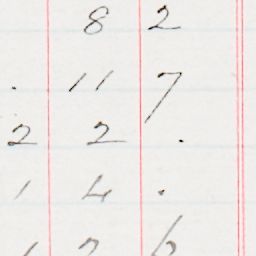 8 2
. 11 7
2 2 .
1 4 .